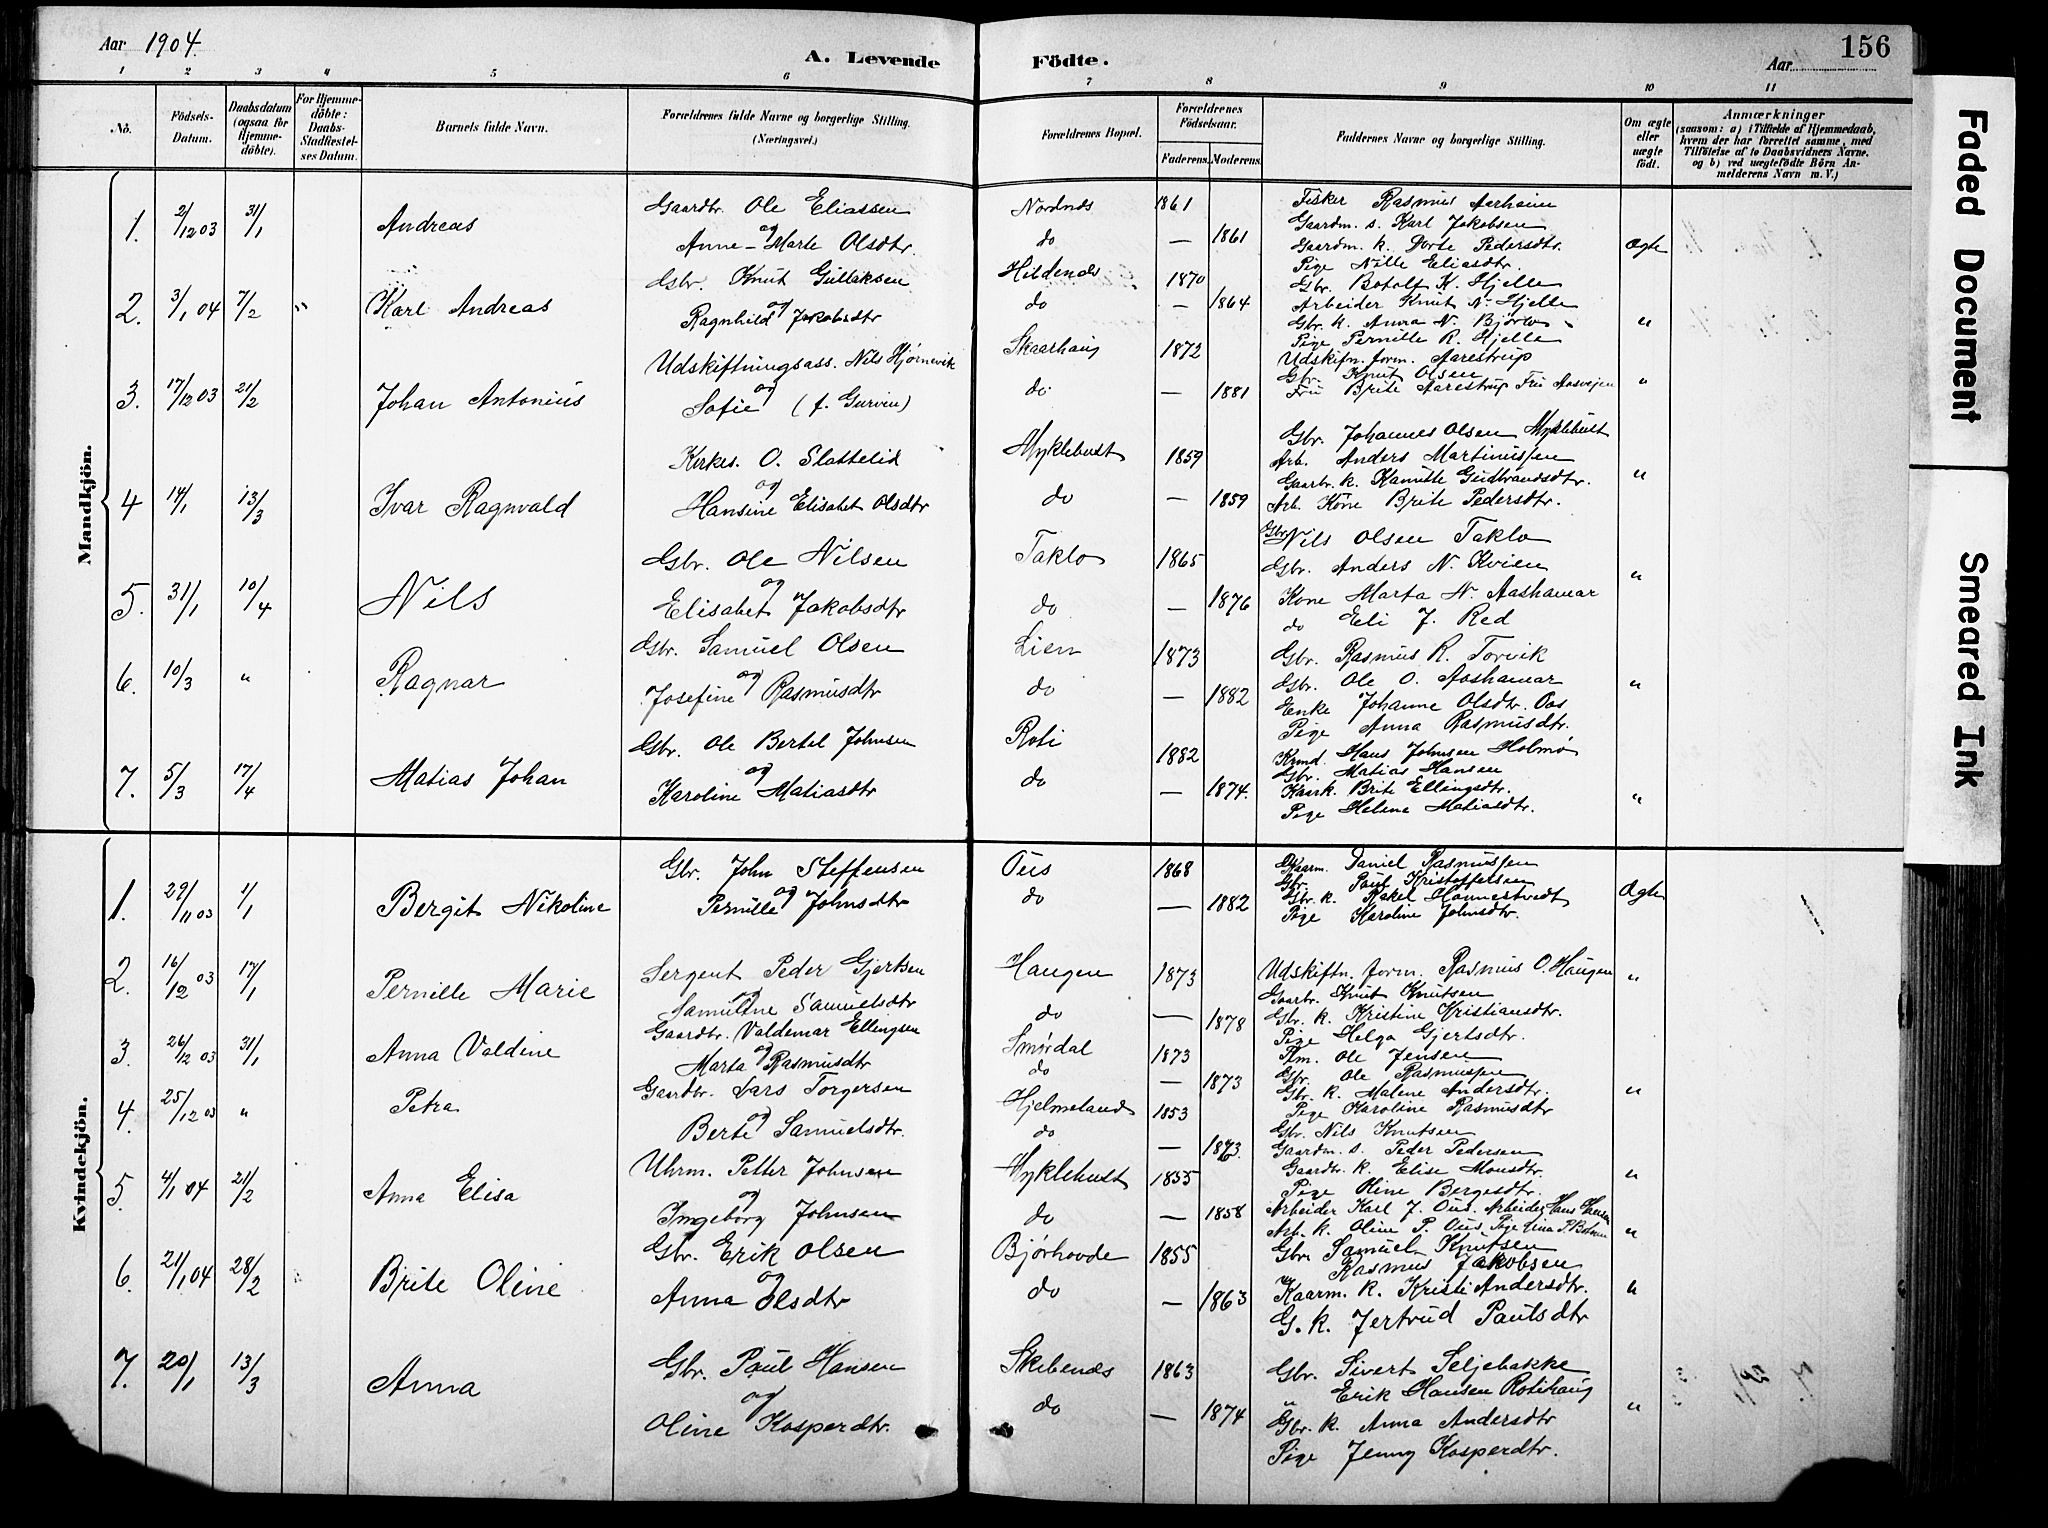 Aar 1904.
A. Levende Födte.
Aar
156
1 2 3 4 5 6 7 8 9 10 11
No.
Födsels-Datum.
Daabsdatum (ogsaa for Hjemme-döbte).
For Hjemme-döbte: Daabs-Stadfæstel-ses Datum.
Barnets fulde Navn.
Forældrenes fulde Navne og borgerlige Stilling. (Næringsvei.)
Forældrenes Bopæl.
Forældrenes Födselsaar.
Faderens. Moderens.
Faddernes Navne og borgerlige Stilling.
Om ægte eller uægte födt.
Anmærkninger
(saasom: a) i Tilfælde af Hjemmedaab, hvem der har forrettet samme, med Tilföielse af to Daabsvidners Navne. og b) ved uægtefödte Börn An-melderens Navn m. V.)
Mandkjön.
1. 2/12 03 31/1 Andreas
Gaardbr. Ole Eliassen
og
Anne-Marte Olsdtr.
Nordnes 1861
do — 1861
Fisker Rasmus Aarheim
Gaardm. s. Karl Jakobsen
Gaardm. k. Dorte Pedersdtr.
Pige Nille Eliasdtr.
Ægte
2. 3/1 04 7/2 " Karl Andreas
Gbr. Knut Gullaksen
og
Ragnhild Jakobsdtr
Hildenes 1870
do — 1864
Gbr. Botolf K. Hjelle
Arbeider Knut N. Hjelle
Gbr. k. Anna N. Bjørlo
Pige Pernille R. Hjelle
"
3. 17/12 03 21/2 Johan Antonius
Udskiftningsass. Nils Hjørnevik
og
Sofie (f. Gurvin)
Skaarhaug 1872
do — 1881
Udskifn. form. Aarestrup
Gbr. Knut Olsen
Fru Brite Aarestrup Fru Aasvejen
"
4 14/1 13/3 Ivar Ragnvald
Kirkes. O. Slattelid
og
Hansine Elisabet Olsdtr
Myklebust 1859
do — 1859
Gbr. Johannes Olsen Myklebust
Arb. Anders Martinussen
Gaarbr. k. Kamille Gudbrandsdtr.
Arb. Kone Brite Pedersdtr.
"
5. 31/1 10/4 Nils
Gbr. Ole Nilsen
og
Elisabet Jakobsdtr
Taklo 1865
do — 1876
Gbr. Nils Olsen Taklo
Gbr. Anders N. Kvien
Kone Marta N. Aashamar
do Eli J. Red
"
6. 10/3 " Ragnar
Gbr. Samuel Olsen
og
Josefine Rasmusdtr
Lien 1873
do — 1882
Gbr. Rasmus R. Torvik
Gbr. Ole O. Aashamar
Enke Johanne Olsdtr. Oos
Pige Anna Rasmusdtr.
"
7. 5/3 17/4 Matias Johan
Gbr. Ole Bertel Johnsen
og
Karoline Matiasdtr
Roti 1882
do — 1874.
Kmd. Hans Johnsen Holmø
Gbr. Matias Hansen
Kaark. Brite Ellingsdtr.
Pige Helene Matiasdtr.
"
Kvindekjön.
1. 29/11 03 1/1 Bergit Nikoline
Gbr. John Steffensen
og
Pernille Johnsdtr
Ous 1868
do — 1882
Kaarm. Daniel Rasmussen
Gbr. Paul Kristoffersen
Gbr. k. Rakel Honnestvedt
Pige Karoline Johnsdtr.
Ægte
2. 16/12 03 17/1 Pernille Marie
Sergent Peder Gjertsen
og
Samuline Samuelsdtr
Haugen 1873
do — 1878
Udskiftn. form. Rasmus O. Haugen
Gaarbr. Knut Knutsen
Gbr. k. Kristine Kristiansdtr.
Pige Helga Gjertsdtr.
"
3. 26/12 03 31/1 Anna Valdine
Gaardbr. Valdemar Ellingsen
og
Marta Rasmusdtr
Smørdal 1873
do — 1873
Plm. Ole Jensen
Gbr. Ole Rasmussen
Gbr. k. Malene Andersdtr.
Pige Karoline Rasmusdtr
"
4. 25/12 03 " Petra
Gaardbr. Lars Torgersen
og
Berte Samuelsdtr.
Hjelmeland 1853
do — 1873.
Gbr. Nils Knutsen
Gaardm. s. Peder Pedersen
Gaardbr. k. Elise Monsdtr.
Pige Oline Bergesdtr.
"
5. 4/1 04 21/2 Anna Elisa
Uhrm. Petter Johnsen
og
Ingeborg Johnsen
Myklebust 1855
do — 1858
Arbeider Karl J. Ous. Arbeider Hans Hansen
Arb. k. Oline P. Ous
"
6. 21/1 04 28/2 Brite Oline
Gbr. Erik Olsen
og
Anna Olsdtr
Bjørhovde 1855
do — 1863
Gbr. Samuel Knutsen
Rasmus Jakobsen
Kaarm. k. Kristi Andersdtr.
G. k. Jertrud Paulsdtr
"
7. 20/1 13/3 Anna
Gbr. Paul Hansen
og
Oline Kasperdtr.
Skebenes 1863
do — 1874
Gbr. Sivert Seljebakke
" Erik Hansen Rotihaug
Gbr. k. Anna Andersdtr
Pige Jenny Kasperdtr.
"
Faded Document
Smeared Ink